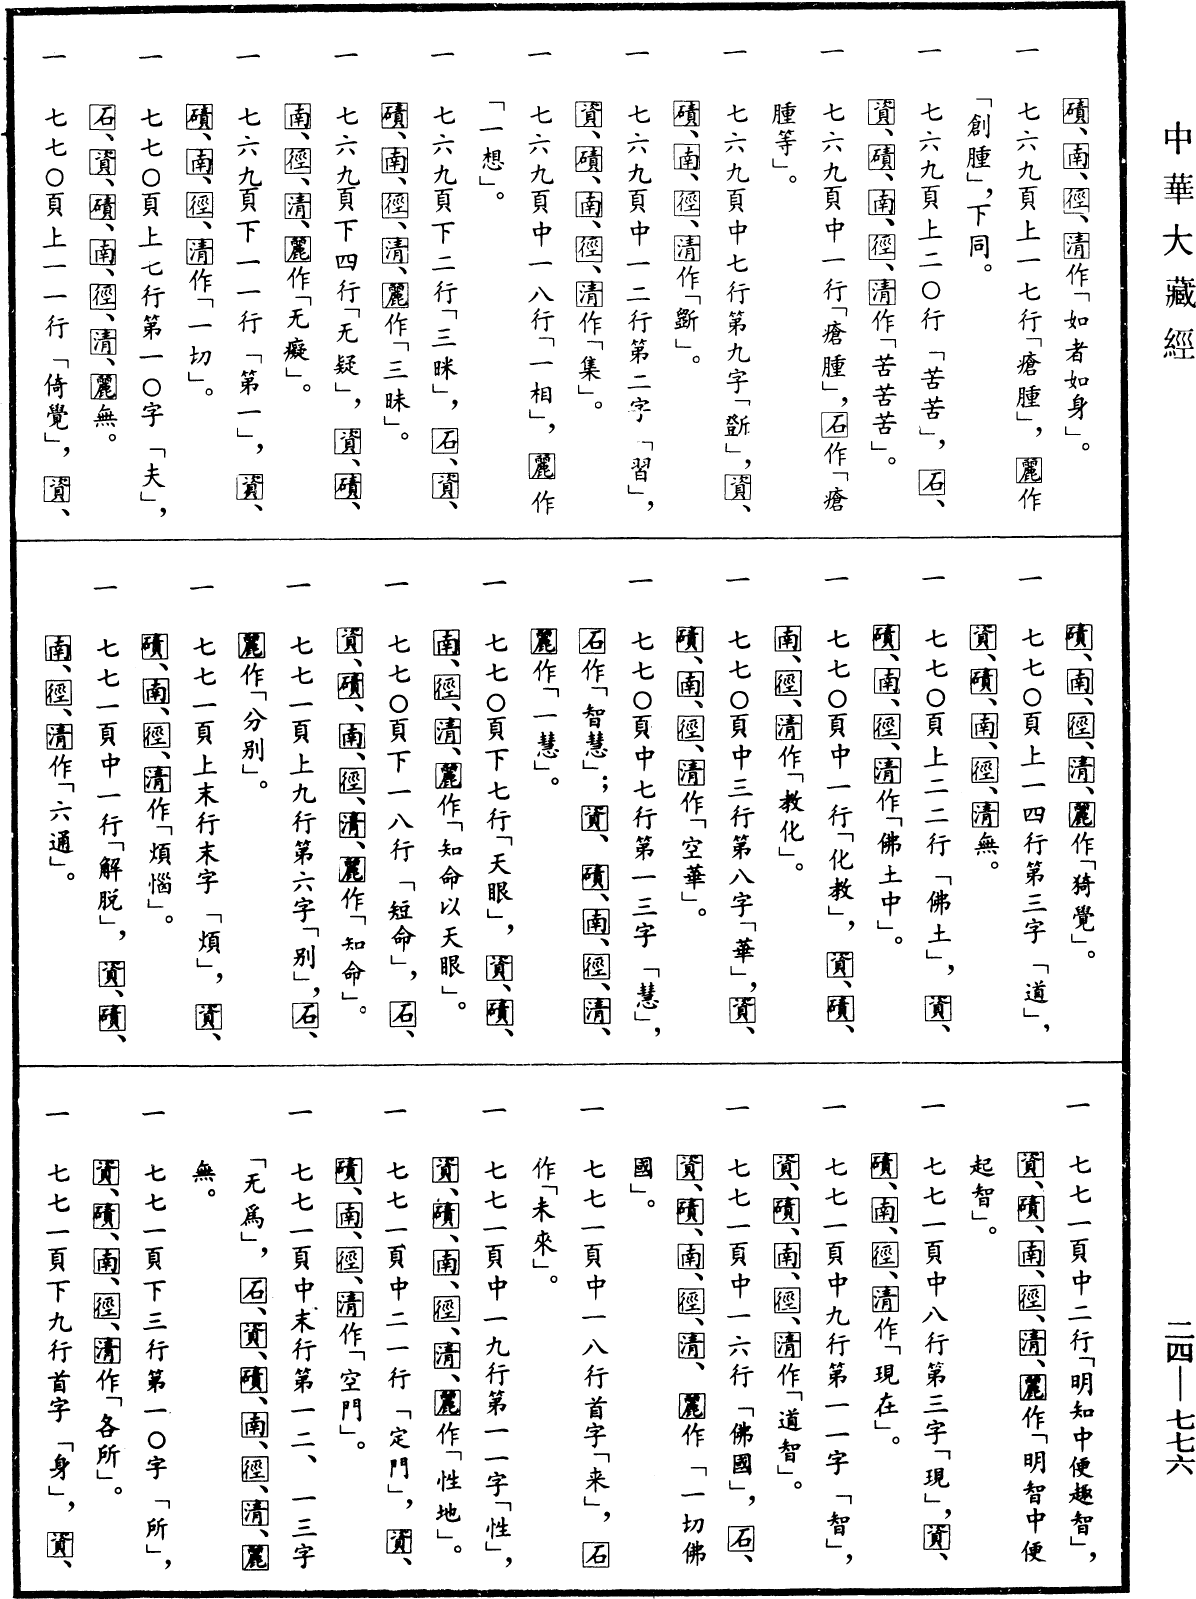 中華大藏經
磧、南、徑、清作「如者如身」。
一　七六九頁上一七行「瘡腫」，麗作
「創腫」，下同。
一　七六九頁上二〇行「苦苦」，石、
資、磧、南、徑、清作「苦苦苦」。
一　七六九頁中一行「瘡腫」，石作「瘡
腫等」。
一　七六九頁中七行第九字「斲」，資、
磧、南、徑、清作「斷」。
一　七六九頁中一二行第二字「習」，
資、磧、南、徑、清作「集」。
一　七六九頁中一八行「一相」，麗作
「一想」。
一　七六九頁下二行「三眯」，石、資、
磧、南、徑、清、麗作「三昧」。
一　七六九頁下四行「无疑」，資、磧、
南、徑、清、麗作「无癡」。
一　七六九頁下一一行「第一」，資、
磧、南、徑、清作「一切」。
一　七七〇頁上七行第一〇字「夫」，
石、資、磧、南、徑、清、麗無。
一　七七〇頁上一一行「倚覺」，資、
磧、南、徑、清、麗作「猗覺」。
一　七七〇頁上一四行第三字「道」，
資、磧、南、徑、清無。
一　七七〇頁上二二行「佛土」，資、
磧、南、徑、清作「佛土中」。
一　七七〇頁中一行「化教」，資、磧、
南、徑、清作「教化」。
一　七七〇頁中三行第八字「華」，資、
磧、南、徑、清作「空華」。
一　七七〇頁中七行第一三字「慧」，
石作「智慧」；資、磧、南、徑、清、
麗作「一慧」。
一　七七〇頁下七行「天眼」，資、磧、
南、徑、清、麗作「知命以天眼」。
一　七七〇頁下一八行「短命」，石、
資、磧、南、徑、清、麗作「知命」。
一　七七一頁上九行第六字「別」，石、
麗作「分別」。
一　七七一頁上末行末字「煩」，資、
磧、南、徑、清作「煩惱」。
一　七七一頁中一行「解脱」，資、磧、
南、徑、清作「六通」。
一　七七一頁中二行「明知中便趣智」，
資、磧、南、徑、清、麗作「明智中便
起智」。
一　七七一頁中八行第三字「現」，資、
磧、南、徑、清作「現在」。
一　七七一頁中九行第一一字「智」，
資、磧、南、徑、清作「道智」。
一　七七一頁中一六行「佛國」，石、
資、磧、南、徑、清、麗作「一切佛
國」。
一　七七一頁中一八行首字「来」，石
作「未來」。
一　七七一頁中一九行第一一字「性」，
資、磧、南、徑、清、麗作「性地」。
一　七七一頁中二一行「定門」，資、
磧、南、徑、清作「空門」。
一　七七一頁中末行第一二、一三字
「无爲」，石、資、磧、南、徑、清、麗
無。
一　七七一頁下三行第一〇字「所」，
資、磧、南、徑、清作「各所」。
一　七七一頁下九行首字「身」，資、
二四—七七六